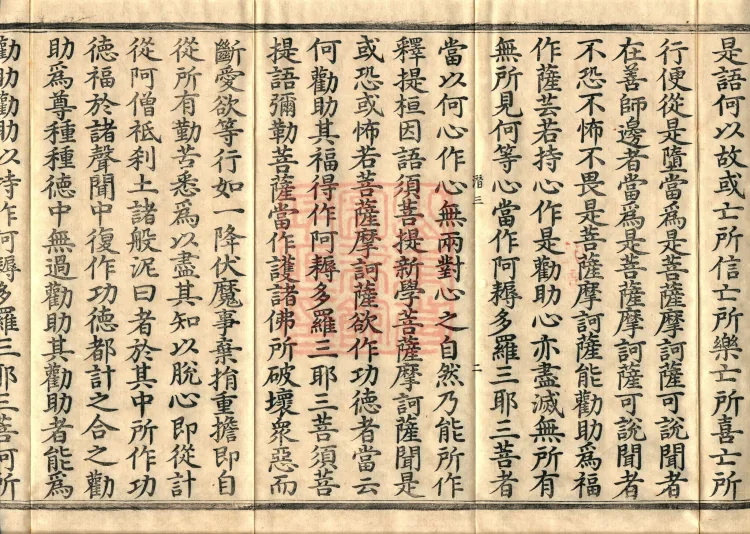 是語何以故或亡所信亡所樂亡所喜亡所
行便從是墮當爲是菩薩摩訶薩可說聞者
在善師邊者當爲是菩薩摩訶薩可說聞者
不恐不怖不畏是菩薩摩訶薩能勸助爲福
作薩芸若持心作是勸助心亦盡滅無所有
無所見何等心當作阿耨多羅三耶三菩者
潜三 二
當以何心作心無兩對心之自然乃能所作
釋提桓因語須菩提新學菩薩摩訶薩聞是
或恐或怖若菩薩摩訶薩欲作功德者當云
何勸助其福得作阿耨多羅三耶三菩須菩
提語彌勒菩薩當作護諸佛所破壞衆惡而
斷愛欲等行如一降伏魔事棄捐重擔即自
從所有勤苦悉爲以盡其知以脫心即從計
從阿僧祇剎土諸般泥曰者於其中所作功
德福於諸聲聞中復作功德都計之合之勸
助爲尊種種德中無過勸助其勸助者能爲
勸助勸助以持作阿耨多羅三耶三菩何所